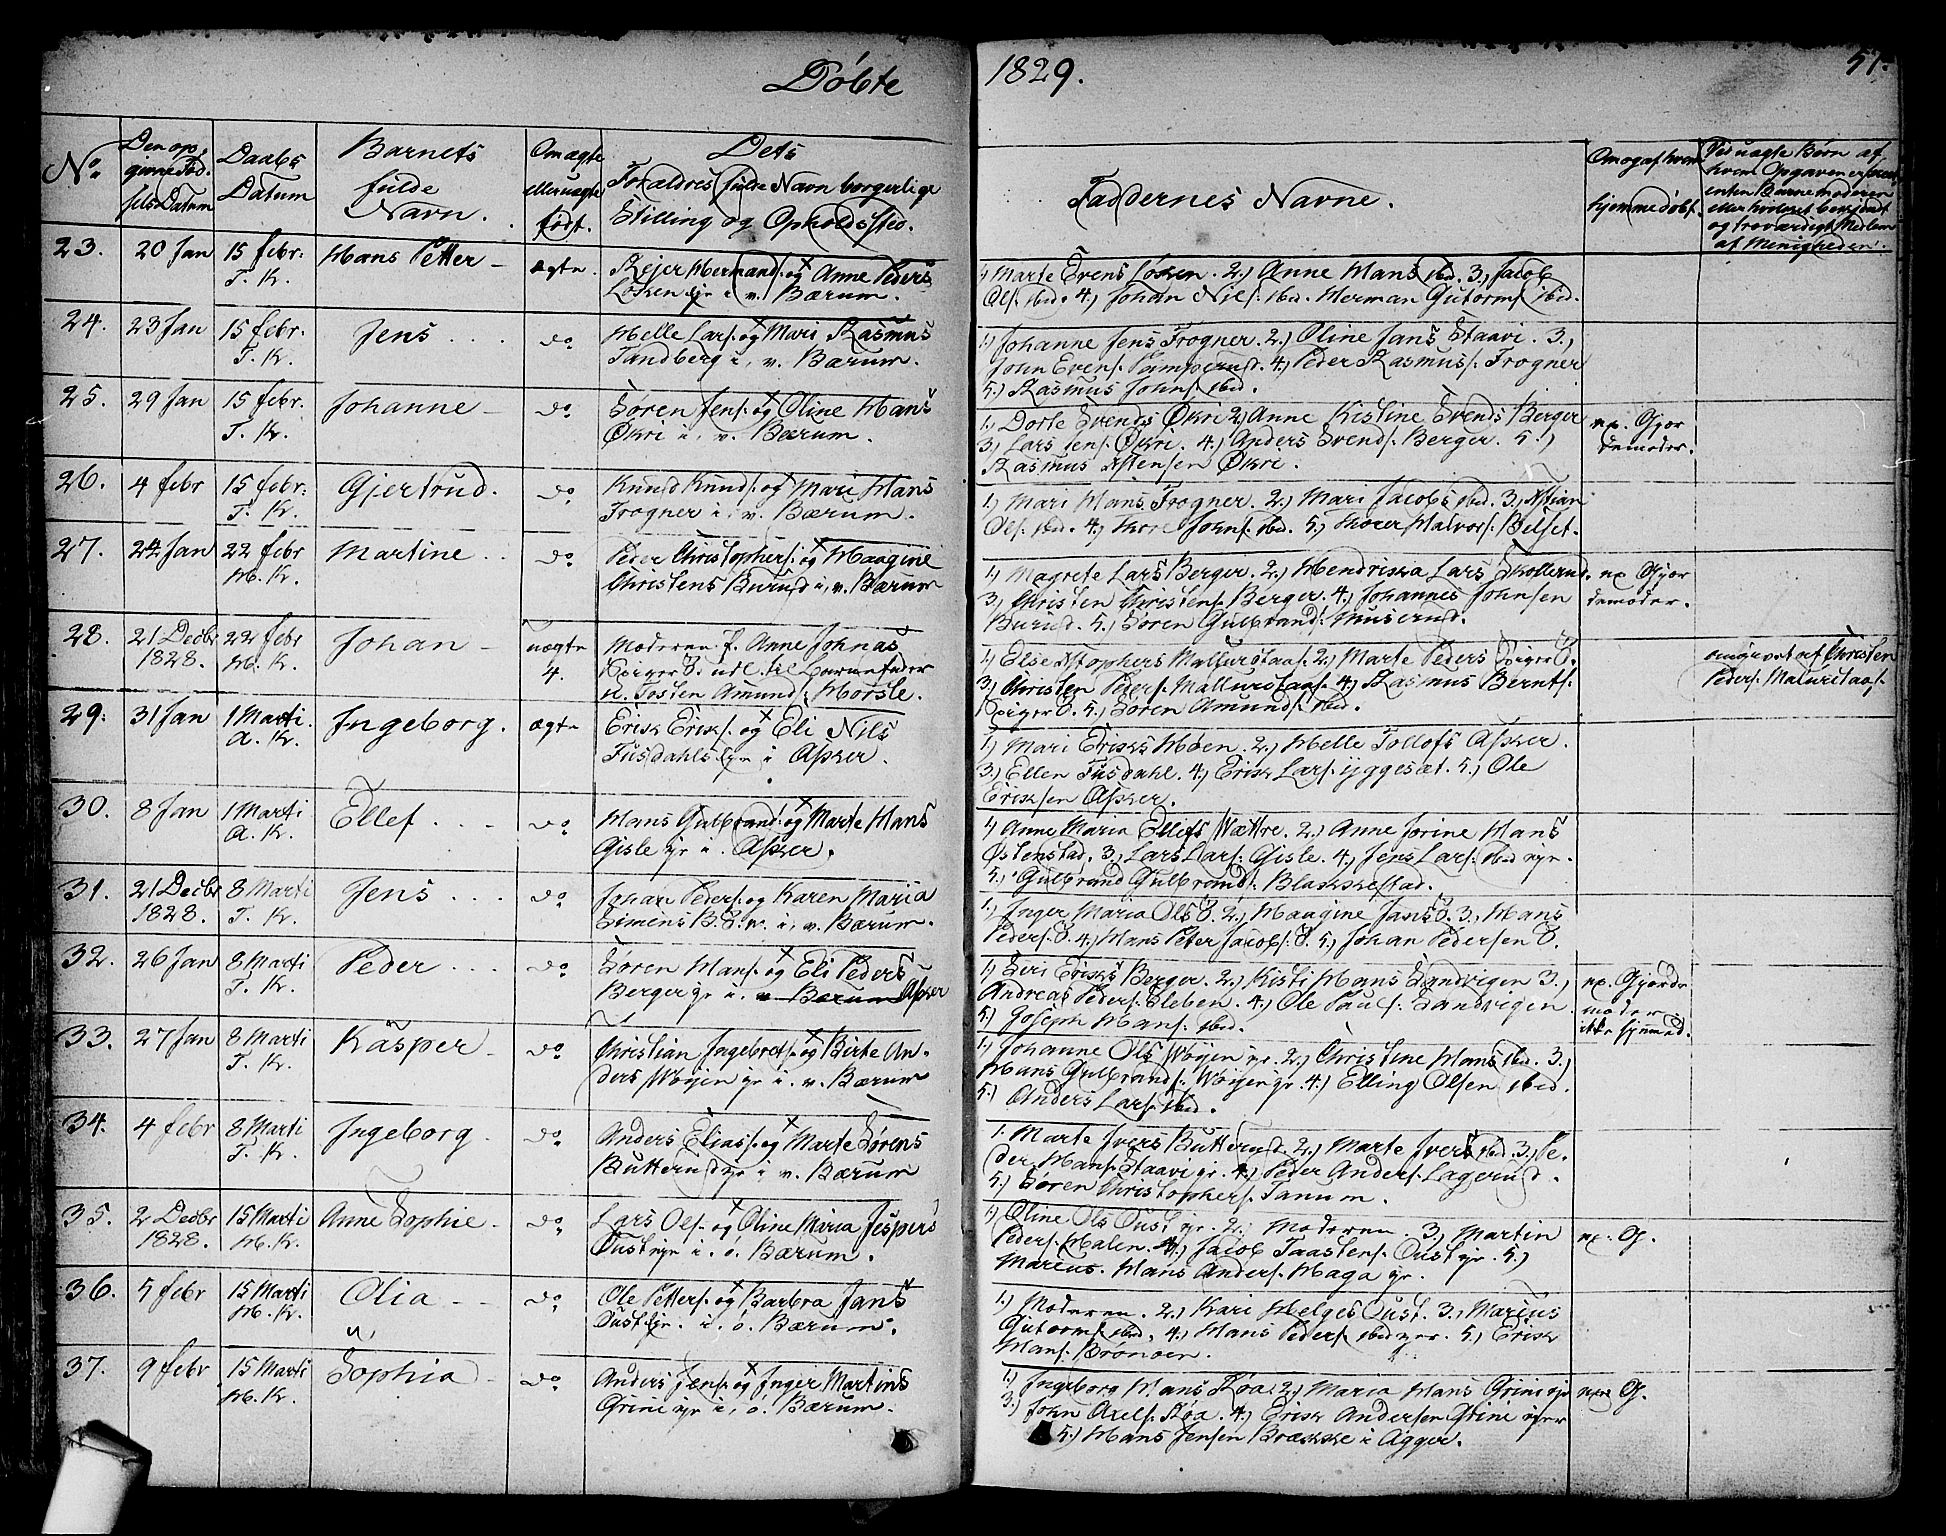 Döbte 1829. 51.
No. | Den opgivne Fødsels Datum | Daabs Datum | Barnets fulde Navn. | Om ægte eller uægte født. | Dets Forældres fulde Navn borgerlige Stilling og Opholdssted. | Faddernes Navne. | Om og af hvem hjemmedøbt. | Ved uægte Børn af hvem Opgaven er skeet enten Barnemoderen eller hvileret bekjendt og troværdigt Medlem af Menigheden.
23. 20 Jan 15 febr: T. K. Hans Petter – ægte. Rejer Hermands: og Anne Peders
Løken gr i v. Bærum.
1) Marte Evens Løken. 2.) Anne Hans ibd. 3, Jacob
Ols: ibd. 4,) Johan Nils: ibd. Herman Gutorms ibd.
24. 23 Jan 15 febr. T. K. Jens . . . do Helle Lars: og Mari Rasmus
Tandberg i, v. Bærum.
1.) Johanne Jens Frogner. 2.) Oline Jans Staavi. 3.,
John Evens: 4.) Peder Rasmus: Frogner
5.) Rasmus Johns ibd.
25. 29 Jan 15 febr. T. K. Johanne – do Søren Jens: og Oline Hans
Økri i, v. Bærum.
1.) Dorte Svends Økri 2.) Anne Kistine Svends Berger
3.) Lars Jens: Økri. 4.) Anders Svends: Berger. 5.,
Rasmus Økri.
np. Gjor
demoder.
26. 4 febr 15 febr: T. K. Gjertrud. do Knud Knuds: og Mari Hans
Frogner i, v. Bærum.
1.) Mari Hans Frogner. 2.) Mari Jacobs ibd. 3,
Ols: ibd. 4,) Thore Johns: ibd. 5.) Thorer Halvors: Belset.
27. 24 Jan 22 febr H. K. Martine . . do Peder Christophers: og Haagine
Christens Burud i, v. Bærum
1,) Magrete Lars Berger. 2.) Hendrikka Lars Skollerud.
3, Christen Christens: Berger. 4.) Johannes Johnsen
Burud. 5.) Søren Gulbrands: Muserud.
np Gjor
demoder.
28. 21 Decbr 1828. 22 febr H. K. Johan – uægte 4. Moderen f. Anne Johnas
udl. til Barnefader
u. Tosten Amunds: Horsle.
1,) Else Mallurstaas. 2.) Marte Peders
3.) Christen Peders: Mallurstaas. 4.) Rasmus Bernts:
5.) Søren Amunds ibd.
angivet af Christen
Peders: Malurstaas.
29: 31 Jan 1 Marti. A. K. Ingeborg. ægte Erik Eriks: og Eli Nils
Fusdahls gr i Asker.
1,) Mari Eriks Høen. 2.) Helle Tollofs Asker.
3.) Ellen Fusdahl. 4,) Erik Lars: yggesæt. 5,) Ole
Eriksen Asker.
30. 8 Jan 1 Marti A. K. Ellef . . . do Hans Gulbrands: og Marte Hans
Gisle gr i. Asker.
1,) Anne Maria Ellefs Wættre. 2.) Anne Jorine Hans
Østenstad. 3,) Lars Lars: Gisle. 4.) Jens Lars: ibd eyr.
5.) Gulbrand Gulbrands: Blakkestad.
31. 21 Decbr 1828. 8 Marti T. K. Jens . . . do Johan Peders: og Karen Maria
Simens B. S. v. i, v. Bærum.
1.) Inger Maria Ols S. 2.) Haagine Jans S. 3.) Hans
Peders: S. 4.) Hans Peter Jacobs: S. 5.) Johan Pedersen S.
32. 26 Jan 8 Marti T. K. Peder . . . do Søren Hans: og Eli Peders
Berger gr i. v Bærum Asker
1.) Siri Eriks Berger. 2.) Kisti Hans Sandvigen 3.,
Andreas Peders: Sleben. 4.) Ole Pauls: Sandvigen.
5.) Joseph Hans: ibd.
np. Gjorde
moder
ikke hjemmed.
33. 27 Jan 8 Marti T. K. Kasper – do Christian Ingebrets: og Birte An-
ders Wøyen gr i. v. Bærum
1,) Johanne Ols Wøyen gr. 2.) Christine Hans ibd. 3.)
Hans Gulbrands: Wøyen gr. 4.) Elling Olsen ibid.
5.) Anders Lars: ibd.
34. 4 febr 8 Marti T. K. Ingeborg. do Anders Elias: og Marte Sørens
Butterud gr i v. Bærum
1. Marte Ivers Butterud. 2.) Marte Ivers ibd. 3.) Pe-
der Hans: Staavi gr. 4.) Peder Anders: Lagerud.
5.) Søren Christophers: Tanum.
35. 2 Decbr 1828. 15 Marti H. K. Anne Sophie – do Lars Ols: og Oline Maria Jespers
Oust gr i. ø. Bærum.
1.) Oline Ols Oust gr. 2,) Moderen 3.) Martin
Peders: Halen. 4.) Jacob Taastens: Oust gr. 5.)
Marcus. Hans Anders: Haga gr.
np. G.
36. 5 febr 15 Marti H. K. Olia – – do Ole Petters: og Barbra Jans
Oust gr. i. ø. Bærum.
1.) Moderen. 2.) Kari Helges Oust. 3.) Marius
Gutorms: ibd. 4.) Hans Peders ibd gr. 5.) Erik
Hans: Brønøen.
37. 9 febr 15 Marti H. K. Sophia – do Anders Jens: og Inger Martins
Grini gr i, ø. Bærum.
1.) Ingeborg Hans Røa 2.) Maria Hans Grini gr
3.) John Axels: Røa. 4.) Erik Andersen Grini
5.) Hans Jensen Brække i Agger.
np G.